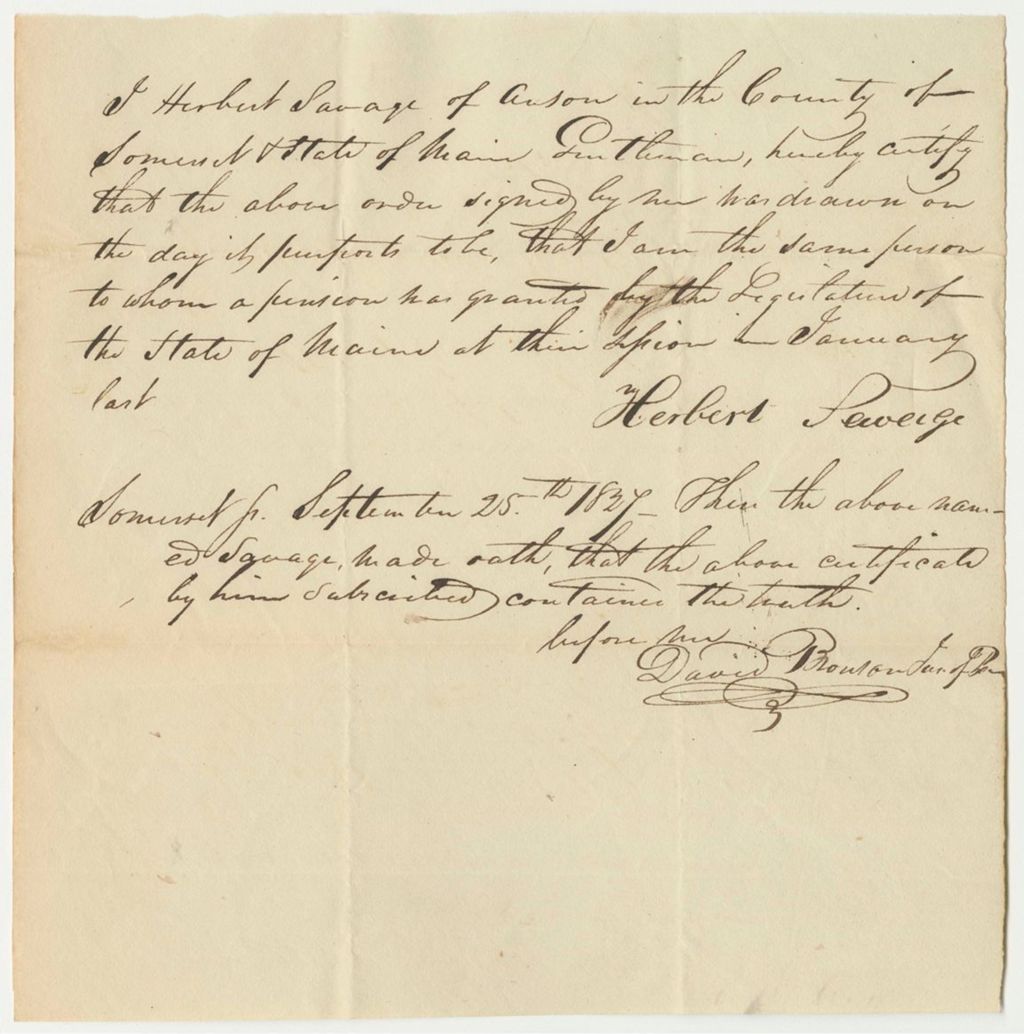 I Herbert Savage of Anson in the County of
Somerset & State of Maine Gentleman, hereby certify
that the above order signed by me was drawn on
the day it purports to be, that I am the same person
to whom a pension was granted by the Legislature of
the State of Maine at their session in January
last
Herbert Seweige
Somerset ss. September 25.th 1837 - Then the above nam-
ed Savage, made oath, that the above certificate
by him subscribed contained the truth.
before me
David Bronson Jus of Pea